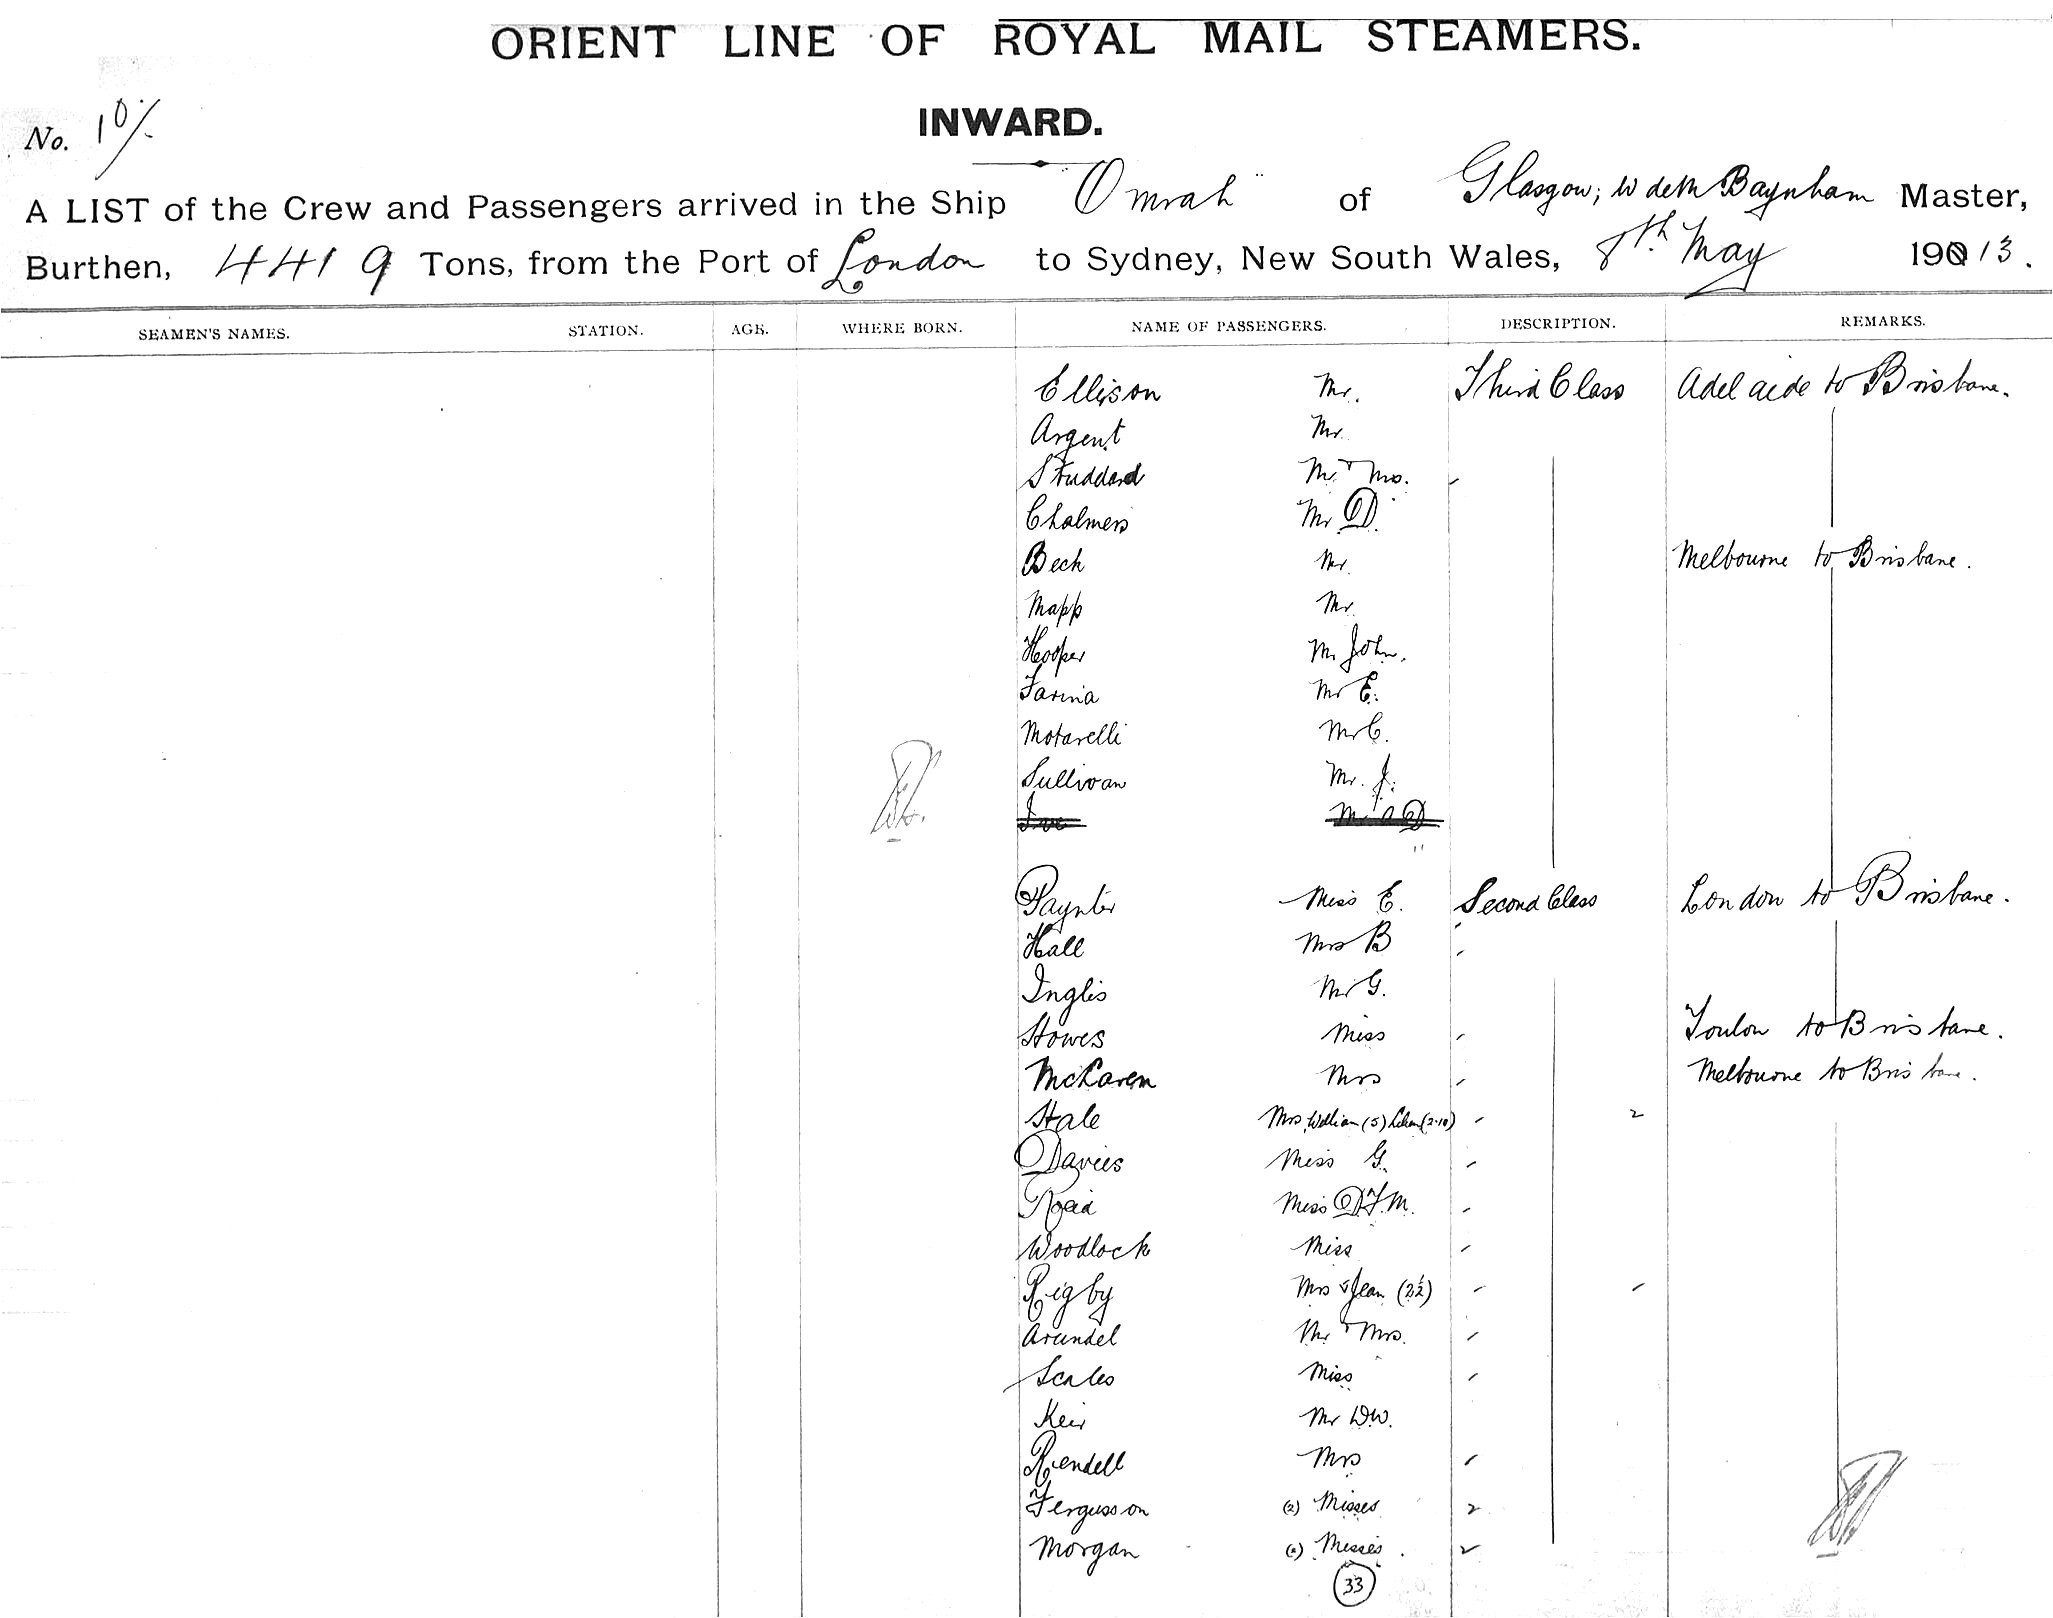 ORIENT LINE OF ROYAL MAIL STEAMERS.
INWARD.
No. 10/-
A LIST of the Crew and Passengers arrived in the Ship "Omrah" of Glasgow; W de M Baynham Master,
Burthen, 4419 Tons, from the Port of London to Sydney, New South Wales, 8th May 19013.
SEAMEN'S NAMES. STATION. AGE. WHERE BORN. NAME OF PASSENGERS. DESCRIPTION. REMARKS.
Ellison Mr. Third Class Adelaide to Brisbane.
Argent Mr.
Studdard Mr. + Mrs.
Chalmers Mr D.
Beck Mr. Melbourne to Brisbane.
Mapp Mr.
Hooper Mr John.
Farina Mr E.
Motarelli Mr C.
Sullivan Mr. J.
Paynter Miss E. Second Class London to Brisbane.
Hall Mrs B
Inglis Mr G.
Howes Miss Toulon to Brisbane.
McLaren Mrs Melbourne to Brisbane.
Hale Mrs, William (5) (2-10) 2
Davies Miss G.
Reid Miss D.F.M.
Woodlock Miss
Rigby Mrs + Jean (2½)
Arundel Mr + Mrs.
Scales Miss
Keir Mr D.W.
Rendell Mrs
Fergusson (2) Misses 2
Morgan (2) Misses. 2
33